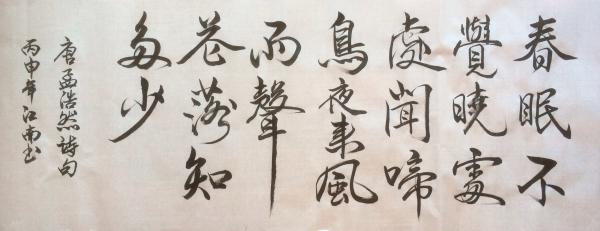 春眠不
覺曉處
處聞啼
鳥夜来風
雨聲
花落知
多少
唐孟浩然詩句
丙申年江南书